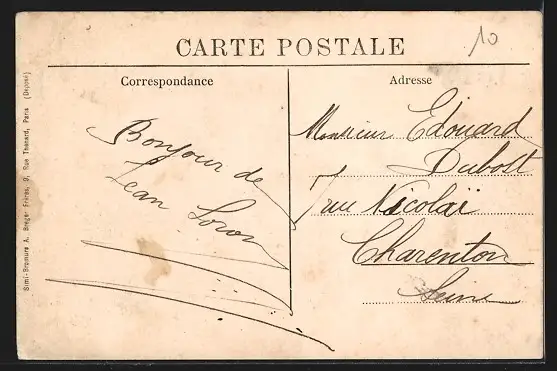 CARTE POSTALE
10
Correspondance
Adresse
Bonjour de
Jean
Monsieur Edouard
Dubolt
7 rue Nicolaï
Charenton
Seine
Simi-Bromure A. Breger Frères, 9, Rue Thénard, Paris (Déposé)